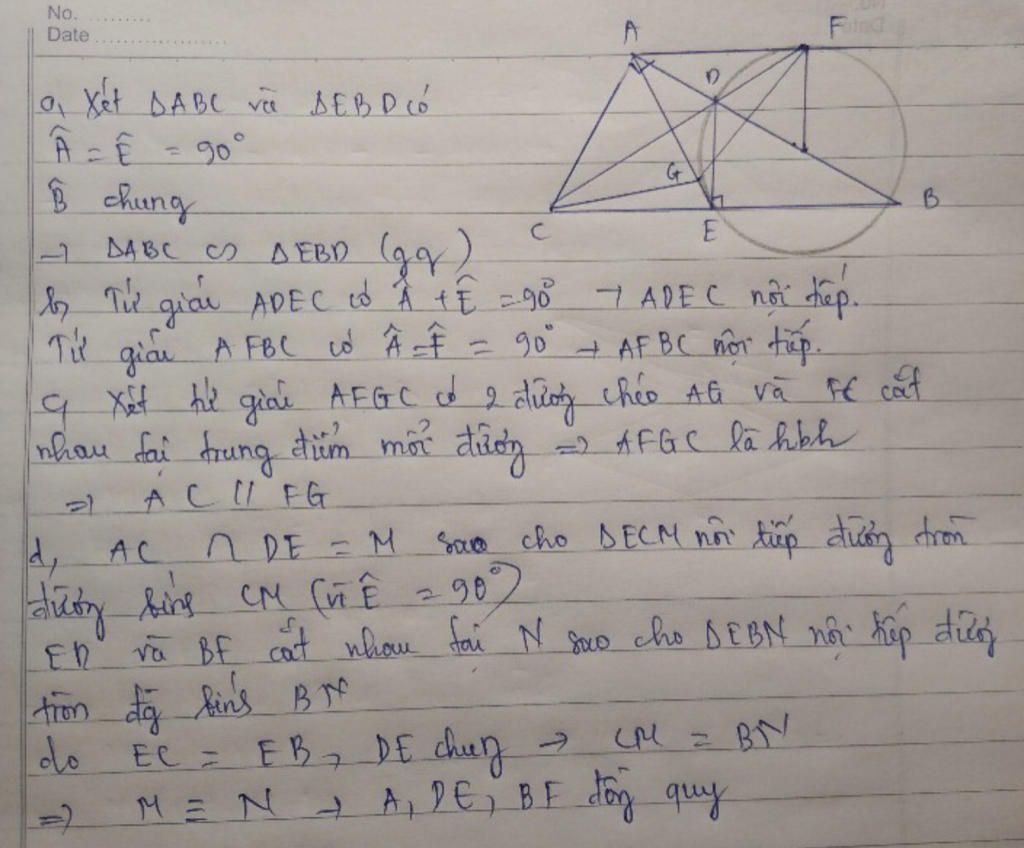 No. ..........
Date ....................
A
F
D
G
C
E
B
a, Xét ΔABC và ΔEBD có
Â = Ê = 90°
B̂ chung
→ ΔABC ∽ ΔEBD (gg)
b, Tứ giác ADEC có Â + Ê = 90° → ADEC nội tiếp.
Tứ giác AFBC có Â = F̂ = 90° → AFBC nội tiếp.
c, Xét tứ giác AFGC có 2 đường chéo AG và FC cắt
nhau tại trung điểm mỗi đường => AFGC là hbh
=> AC // FG
d, AC ∩ DE = M sao cho ΔECM nội tiếp đường tròn
đường kính CM (vì Ê = 90°)
ED và BF cắt nhau tại N sao cho ΔEBN nội tiếp đường
tròn đg kính BN
do EC = EB, DE chung → CM = BN
=> M ≡ N → A, DE, BF đồng quy